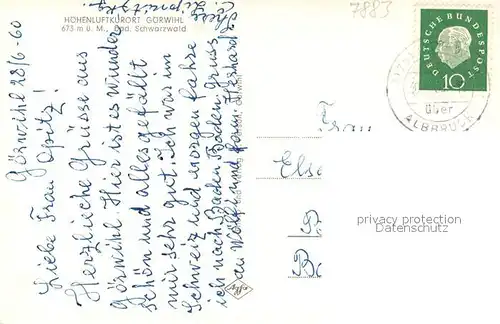 HÖHENLUFTKURORT GÖRWIHL
675 m ü. M., Bad. Schwarzwald
7883
Görwihl 28/6-60
Liebe Frau Opitz!
Herzliche Grüsse aus
Görwihl. Hier ist es wunder
schön und alles gefällt
mir sehr gut. Ich war im
Schweiz und morgen fahre
ich nach Baden Baden. Gruss
an Wolfi und Frau
DEUTSCHE BUNDESPOST
10
über
ALBBRUCK
Frau
Els
B
privacy protection
Datenschutz